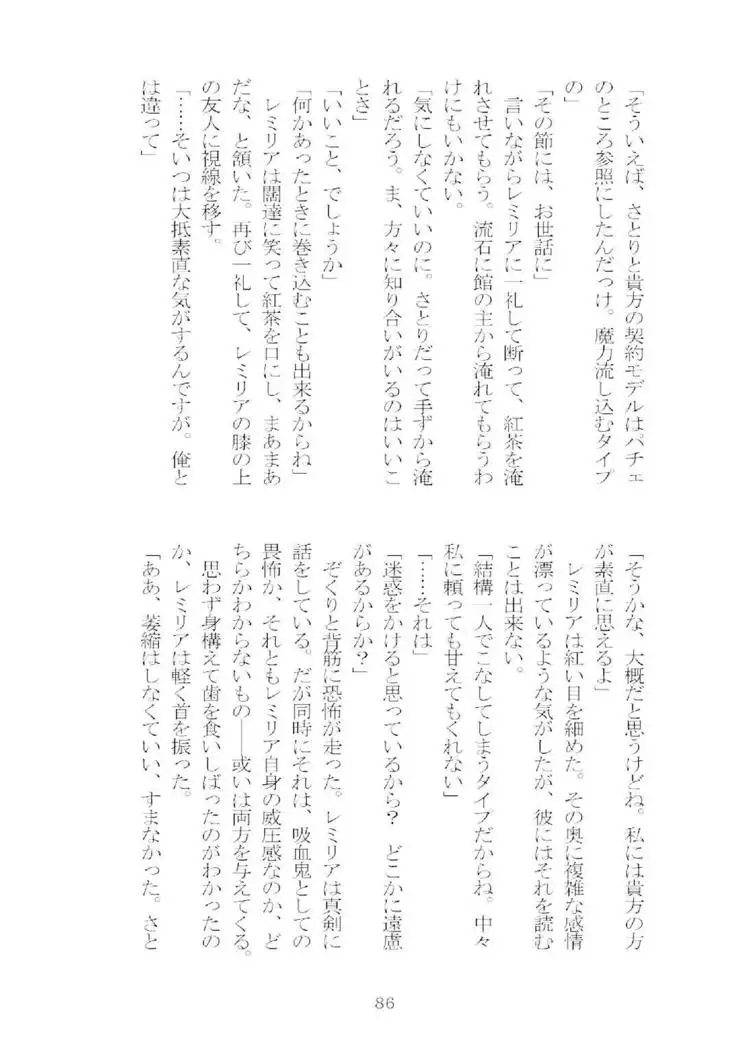 「そういえば、さとりと貴方の契約モデルはパチェ
のところ参照にしたんだっけ。魔力流し込むタイプ
の」
「その節には、お世話に」
　言いながらレミリアに一礼して断って、紅茶を淹
れさせてもらう。流石に館の主から淹れてもらうわ
けにもいかない。
「気にしなくていいのに。さとりだって手ずから淹
れるだろう。ま、方々に知り合いがいるのはいいこ
とさ」
「いいこと、でしょうか」
「何かあったときに巻き込むことも出来るからね」
　レミリアは闊達に笑って紅茶を口にし、まあまあ
だな、と頷いた。再び一礼して、レミリアの膝の上
の友人に視線を移す。
「……そいつは大抵素直な気がするんですが。俺と
は違って」
「そうかな、大概だと思うけどね。私には貴方の方
が素直に思えるよ」
　レミリアは紅い目を細めた。その奥に複雑な感情
が漂っているような気がしたが、彼にはそれを読む
ことは出来ない。
「結構一人でこなしてしまうタイプだからね。中々
私に頼っても甘えてもくれない」
「……それは」
「迷惑をかけると思っているから？　どこかに遠慮
があるからか？」
　ぞくりと背筋に恐怖が走った。レミリアは真剣に
話をしている。だが同時にそれは、吸血鬼としての
畏怖か、それともレミリア自身の威圧感なのか、ど
ちらかわからないもの――或いは両方を与えてくる。
　思わず身構えて歯を食いしばったのがわかったの
か、レミリアは軽く首を振った。
「ああ、萎縮はしなくていい、すまなかった。さと
86